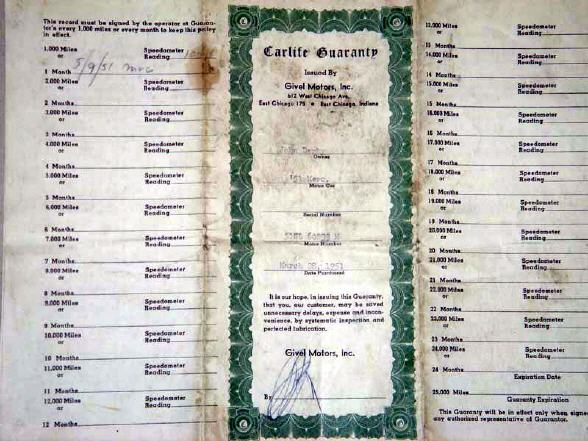 This record must be signed by the operator at Guaran-
tor's every 1,000 miles or every month to keep this policy
in effect.
1,000 Miles Speedometer
or Reading
1 Month 5/9/51
2,000 Miles Speedometer
or Reading
2 Months
3,000 Miles Speedometer
or Reading
3 Months
4,000 Miles Speedometer
or Reading
4 Months
5,000 Miles Speedometer
or Reading
5 Months
6,000 Miles Speedometer
or Reading
6 Months
7,000 Miles Speedometer
or Reading
7 Months
8,000 Miles Speedometer
or Reading
8 Months
9,000 Miles Speedometer
or Reading
9 Months
10,000 Miles Speedometer
or Reading
10 Months
11,000 Miles Speedometer
or Reading
11 Months
12,000 Miles Speedometer
or Reading
12 Months
Carlife Guaranty
Issued By
Givel Motors, Inc.
612 West Chicago Ave.
East Chicago 175 • East Chicago, Indiana
John
Owner
'51 Merc.
Motor Car
Serial Number
Motor Number
March 28, 1951
Date Purchased
It is our hope, in issuing this Guaranty,
that you, our customer, may be saved
unnecessary delays, expense and incon-
venience, by systematic inspection and
perfected lubrication.
Givel Motors, Inc.
By
13,000 Miles Speedometer
or Reading
13 Months
14,000 Miles Speedometer
or Reading
14 Months
15,000 Miles Speedometer
or Reading
15 Months
16,000 Miles Speedometer
or Reading
16 Months
17,000 Miles Speedometer
or Reading
17 Months
18,000 Miles Speedometer
or Reading
18 Months
19,000 Miles Speedometer
or Reading
19 Months
20,000 Miles Speedometer
or Reading
20 Months
21,000 Miles Speedometer
or Reading
21 Months
22,000 Miles Speedometer
or Reading
22 Months
23,000 Miles Speedometer
or Reading
23 Months
24,000 Miles Speedometer
or Reading
24 Months
Expiration Date
25,000 Miles
Guaranty Expiration
This Guaranty will be in effect only when signe
any authorized representative of Guarantor.